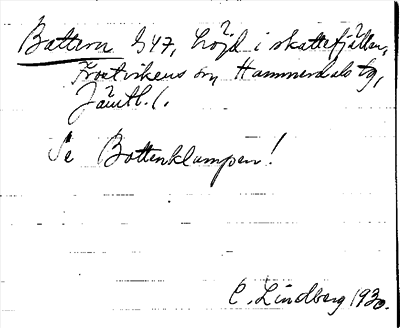 Battern h47, höjd i skattefjällen,
Frostvikens sn Hammerdals tg,
Jämtl. l.
Se Bottenklumpen!
C. Lindberg 1930.